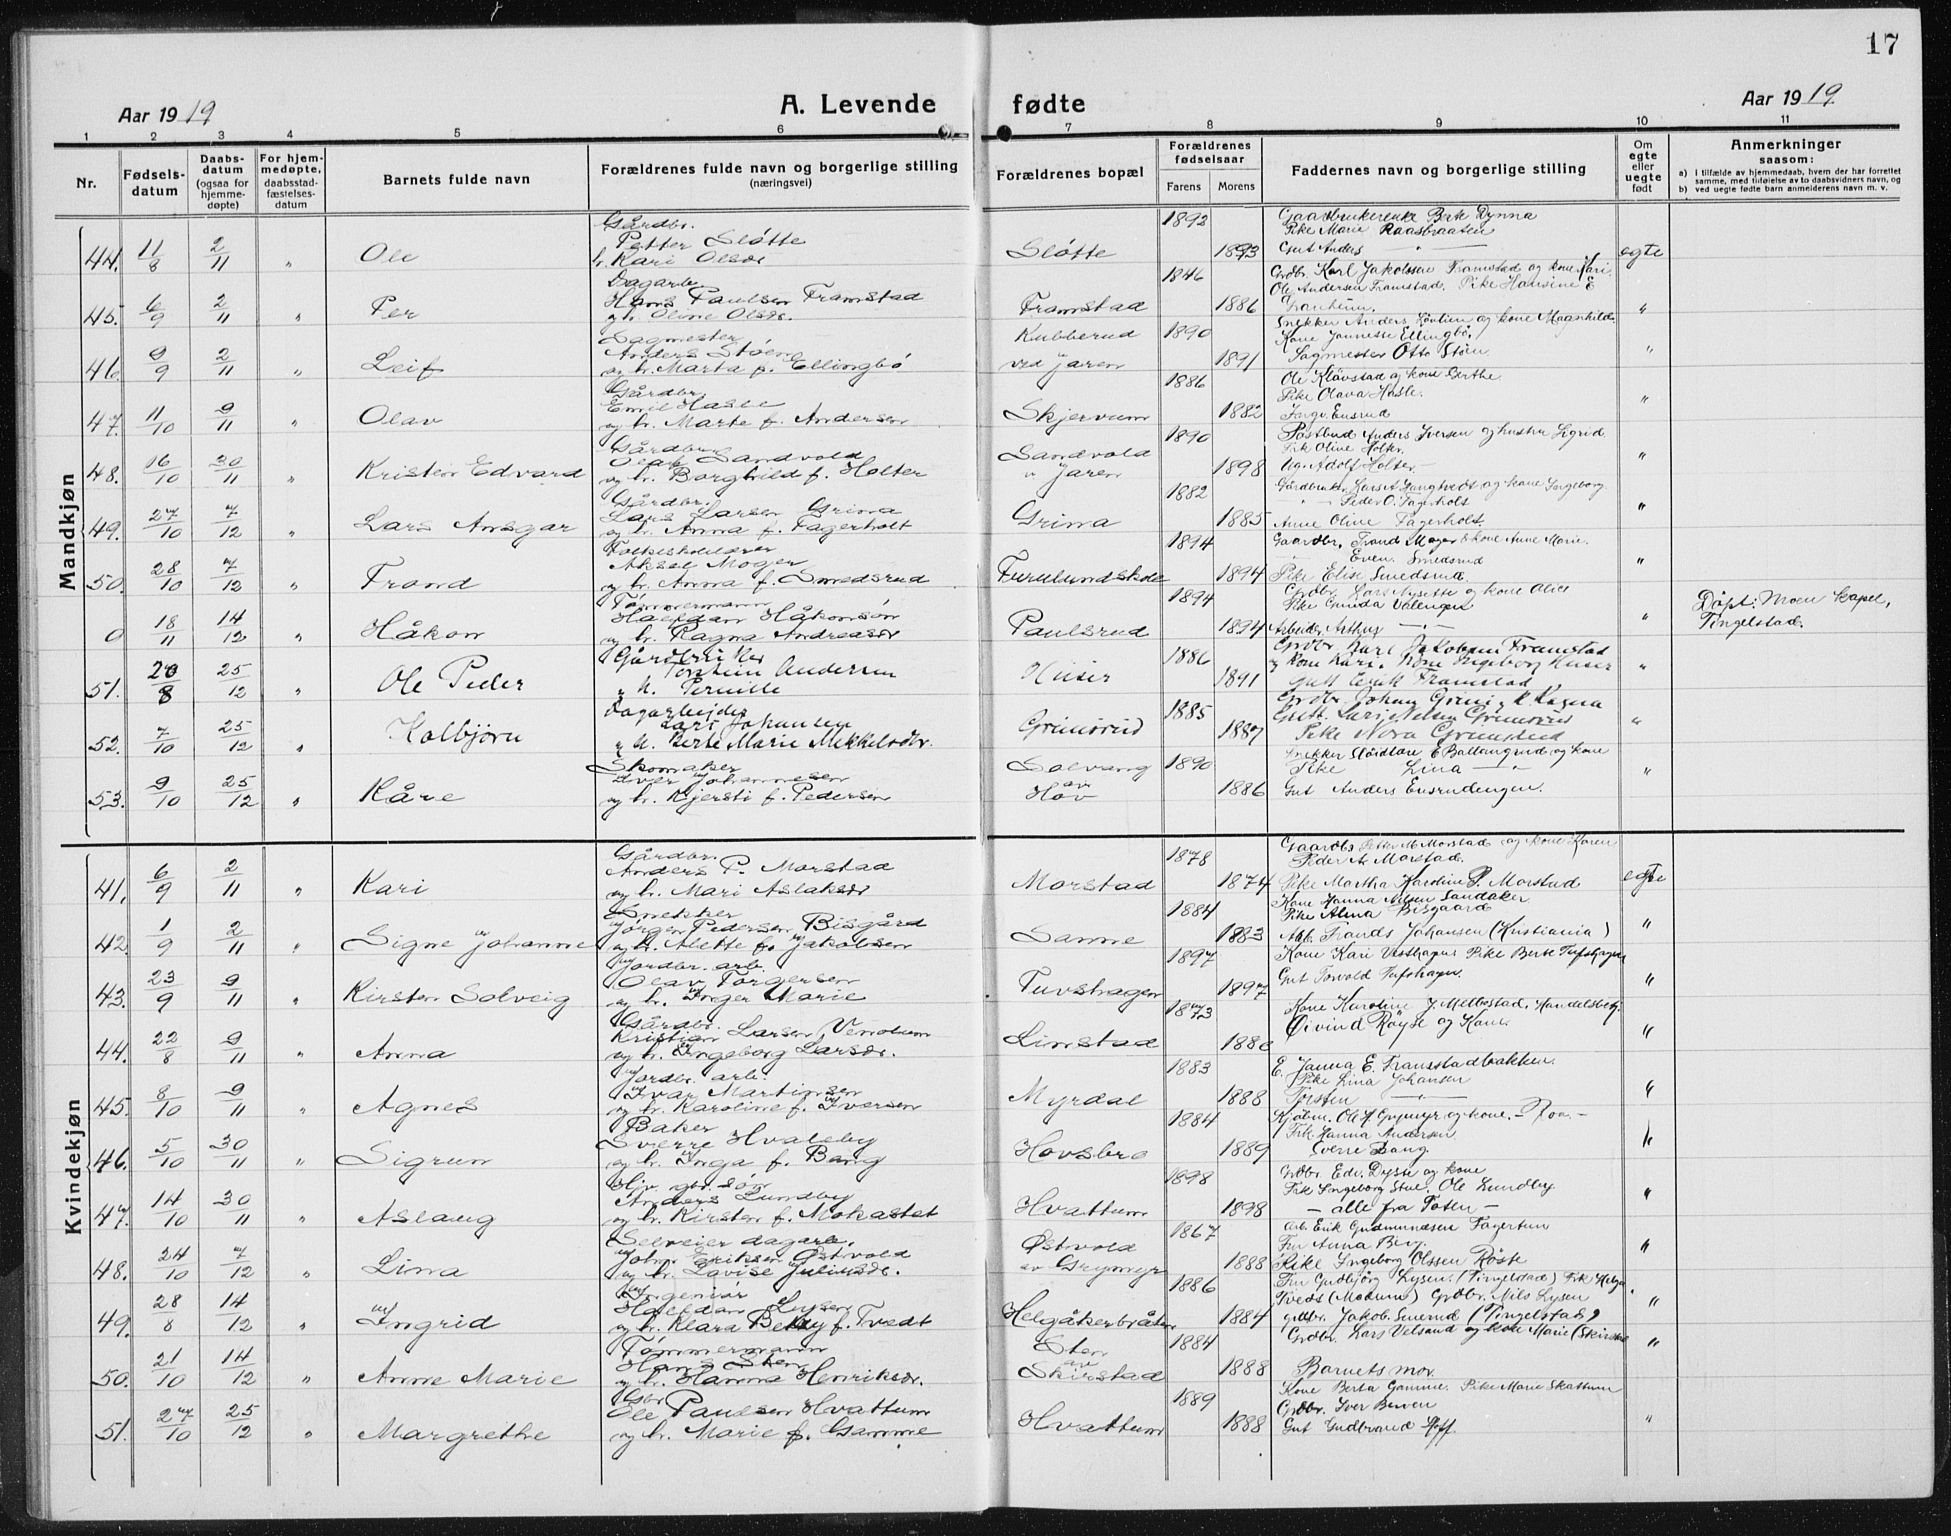 17
Aar 1919
A. Levende fødte
Aar 1919
1 2 3 4 5 6 7 8 9 10 11
Nr.
Fødsels-datum
Daabs-datum (ogsaa for hjemme-døpte)
For hjem-medøpte, daabsstad-fæstelses-datum
Barnets fulde navn
Forældrenes fulde navn og borgerlige stilling (næringsvei)
Forældrenes bopæl
Forældrenes fødselsaar
Farens Morens
Faddernes navn og borgerlige stilling
Om egte eller uegte født
Anmerkninger saasom:
a) I tilfælde av hjemmedaab, hvem der har forrettet samme, med tilføielse av to daabsvidners navn, og
b) ved uegte fødte barn anmelderens navn m. v.
Mandkjøn
Gårdbr. 1892 Gaardbrukerenke Berte Dynna
Petter Sløtte Pike Marie Raasbraaten
44. 11/8 2/11 " Ole h. Kari Olsdr Sløtte 1893 Gut Anders — " — egte
Dagarb. 1846 Grdbr. Karl Jakobsen Framstad og kone Kari
Hans Paulsen Framstad Ole Andersen Framstad. Pike Hansine E
45. 6/9 2/11 " Per og h. Oline Olsdr. Framstad 1886 Granheim. "
Sagmester Kubberud 1890 Snekker Anders Løvlien og kone Magnhild
Anders Støen Kone Jannette Ellingbø.
46. 9/9 2/11 " Leif og h. Marta f. Ellingbø ved Jaren 1891 Sagmester Otto Støen "
Gårdbr. 1886 Ole Kløvstad og kone Berthe
Emil Hasle Pike Olava Hasle.
47. 11/10 9/11 " Olav og h. Marte f. Andersen Skjervum 1882 Ensrud "
Gårdbr. 1890 Postbud Anders Iversen og hustru Sigrid
Sandvold Sandvold Frk Oline Holter.
48. 16/10 30/11 " Kristen Edvard og h. Borghild f. Holter v Jaren 1898 Ug. Adolf Holter — "
Gårdbr. 1882 Gårdbruker Lars A. og kone Ingeborg
Lars Larsen Grina — " — Peder O. Fagerholt
49. 27/10 7/12 " Lars Ansgar og h. Anna f. Fagerholt Grina 1885 Anne Oline Fagerholt. "
Folkeskolelærer 1894 Gaardbr. Trand Moger & kone Anne Marie.
Aksel Moger Even Smedsrud
50. 28/10 7/12 " Trand og h. Anna f. Smedsrud Furulund skole 1894 Pike Elise Smedsrud. "
Tømmermann 1894 Grdbr. Lars Nysette og kone Alice
Halfdan Håkonsøn Pike Gunda Valengen
0 18/11 14/12 " Håkon og h. Ragna Andreasdr Paulsrud 1894 Arbeider Arthur — " — " Døpt: Moen kapel, Tingelstad.
Gårdbruker 1886 Grdbr Karl Jakobsen Framstad
Torstein Andersen og kone Kari. Kone Ingeborg Huser
51. 20/8 25/12 " Ole Peder og h. Pernille Huser 1891 Gutt Erik Framstad "
Dagarbejder 1885 Grdbr. Johan Grini & k. Ragna
Lars Johansen Gutt. Lars Nelsen Grinisrud
52. 7/10 25/12 " Kolbjørn og h. Berte Marie Mikkelsdtr. Grinisrud 1887 Pike Nora Grinisrud "
Skomaker Solvang 1890 Snekker E. Ballangrud og kone
Iver Johannesen Pike Lina — " —
53. 9/10 25/12 " Kåre og h. Kjersti f. Pedersen av Hov 1886 Gut Anders Ensrudengen. "
Kvindekjøn
Gårdbr. 1878 Gaardbr. Petter M. Morstad og kone Karen
Anders P. Morstad Peder A. Morstad.
41. 6/9 2/11 " Kari og h. Mari Aslaksdr Morstad 1874 Pike Martha Karoline P. Morstad egte
Snekker 1884 Kone Hanna Nilsen Sandaker
Jørgen Pedersen Bisgård Pike Alma Bisgaard
42. 1/9 2/11 " Signe Johanne og h. Alette f. Jakobsen Sanne 1883 Arb. Frands Johansen (Kristiania) "
Jordbr. arb. 1897 Kone Kari Vesthagen Pike Berte Tufshagen
Olav Torgersen Gut Torvald Tufshagen.
43. 23/9 9/11 " Kirsten Solveig og h. Inger Marie Tuvshagen 1897 "
Gårdbr. 1873 Kone Karoline J. Melbostad. Handelsbetj.
Kristian Larsen Venolum Øivind Røyse og Kone.
44. 22/8 9/11 " Anna og h. Ingeborg Larsdr. Linstad "
Jordbr. arb. 1883 E. Janna E. Framstadbakken.
Ivar Martinsen Pike Lina Johansen
45. 8/10 9/11 " Agnes og h. Karoline f. Iversen Myrdal 1888 Torsten — " — "
Baker 1884 Kjøbm. Ole H. Grymyr og kone. — Roa. —
Sverre Hvalsby Frk. Hanna Andersen
46. 5/10 30/11 " Sigrun og h. Inga f. Bang Hovsbro 1889 Sverre Bang. "
Hjv. gbr. søn 1898 Grdbr. Edv. Dyste og kone
Anders Lundby Frk Ingeborg Stue. Ole Lundby
47. 14/10 30/11 " Aslaug og h. Kirsten f. Mokastet Hvattum 1898 — alle fra Toten — "
Selveier dagarb. 1867 Arb. Erik Gudmundsen Fagertun
Johan Eriksen Østvold Østvold Fru Anna Berg.
48. 24/10 7/12 " Lina og h. Lovise Juliusdr. av Grymyr 1888 Pike Ingeborg Olssen Røste "
Ingeniør 1886 Fru Gudbjørg Lysen. (Tingelstad) Frk Helga
Halfdan Lysen Tvedt (Modum) Grdbr. Nils Lysen
49. 28/8 14/12 " Ingrid og h. Klara Betsy f. Tvedt Helgåkerbråten 1884 grdbr. Jakob Smerud (Tingelstad) "
Tømmermann Sten 1884 Grdbr. Lars Velsand og kone Marie (Skirstad
Hans Sten av
50. 21/10 14/12 " Anne Marie og h. Hanna Henriksdr. Skirstad 1888 Barnets mor. "
Gbr. 1889 Kone Berta Gamme. Pike Marie Skattum
Ole Paulsen Hvattum Grdbr. Iver Berven
51. 27/10 25/12 " Margrethe og h. Marie f. Gamme Hvattum 1888 Gut Gudbrand Hoff. "